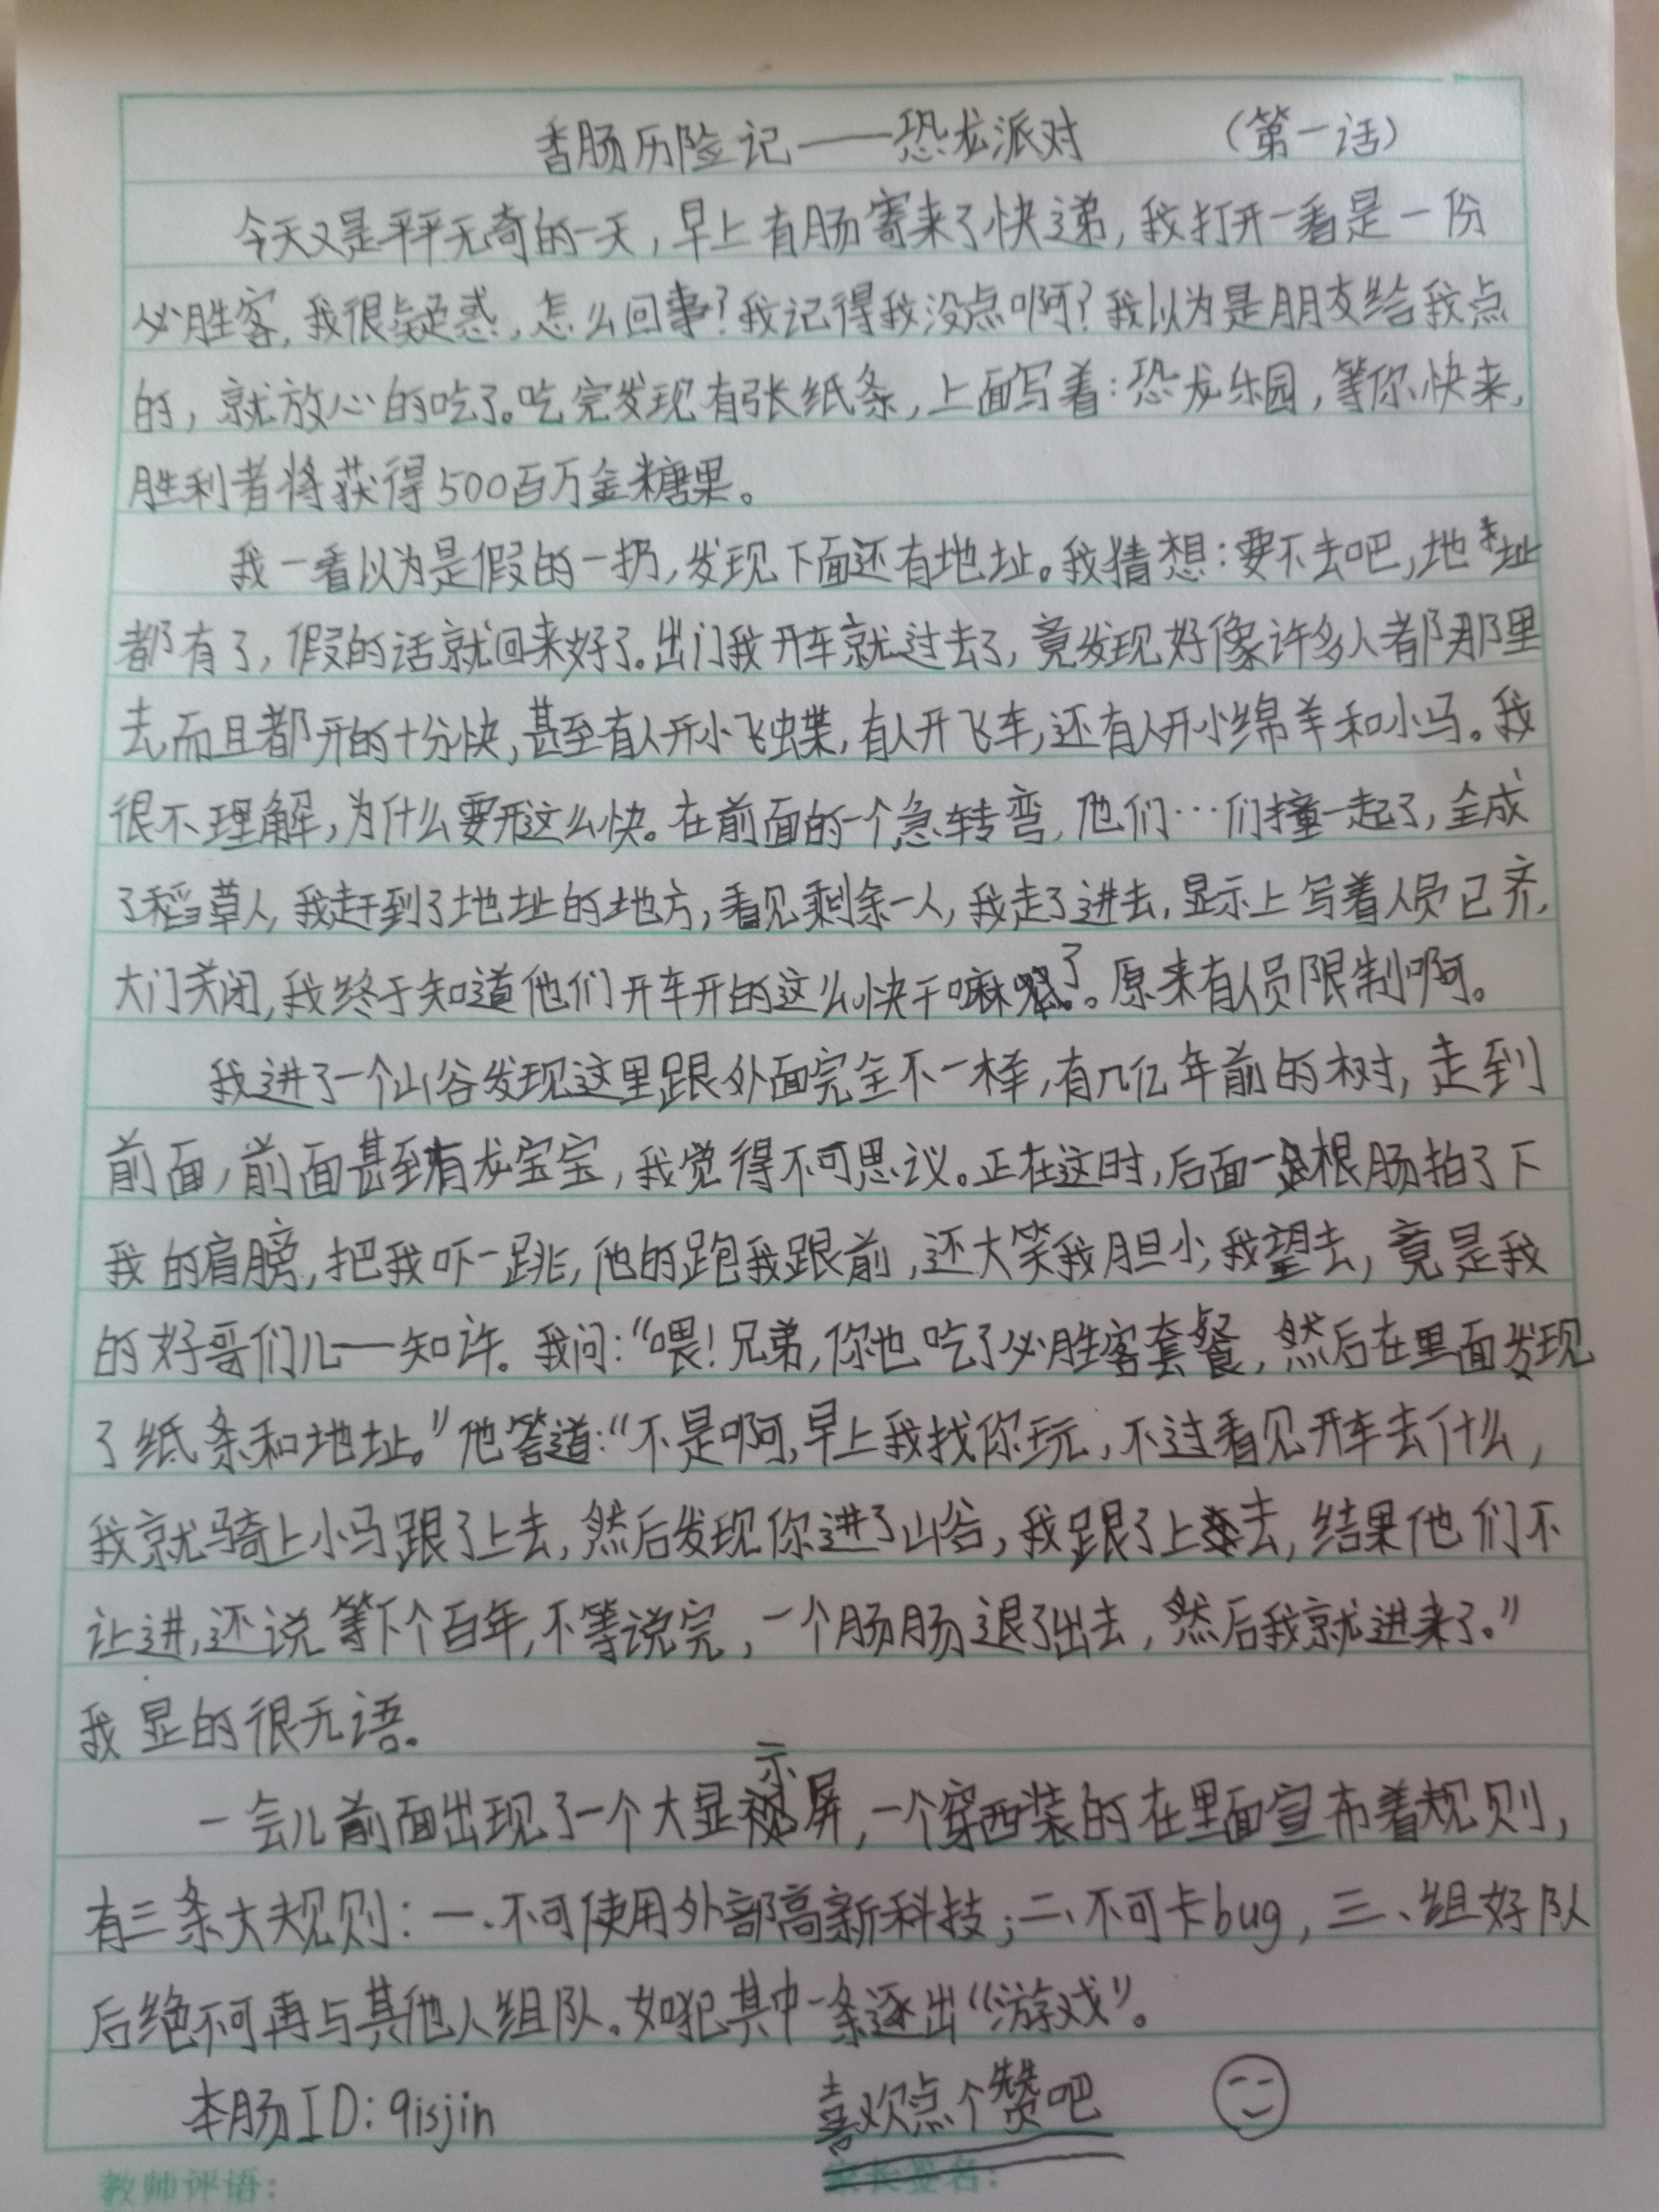 香肠历险记——恐龙派对 （第一话）
今天又是平平无奇的一天，早上有肠寄来了快递，我打开一看是一份
必胜客，我很疑惑，怎么回事？我记得我没点啊？我以为是朋友给我点
的，就放心的吃了。吃完发现有张纸条，上面写着：恐龙乐园，等你快来，
胜利者将获得500百万金糖果。
我一看以为是假的一扔，发现下面还有地址。我猜想：要不去吧，地址
都有了，假的话就回来好了。出门我开车就过去了，竟发现好像许多人都那里
去，而且都开的十分快，甚至有人开小飞蝶，有人开飞车，还有人开小绵羊和小马。我
很不理解，为什么要开这么快。在前面的一个急转弯，他们…们撞一起了，全成
了稻草人，我赶到了地址的地方，看见剩余一人，我走了进去，显示上写着人员已齐，
大门关闭，我终于知道他们开车开的这么快干嘛了。原来有人员限制啊。
我进了一个山谷发现这里跟外面完全不一样，有几亿年前的树，走到
前面，前面甚至有龙宝宝，我觉得不可思议。正在这时，后面一根肠拍了下
我的肩膀，把我吓一跳，他的跑我跟前，还大笑我胆小，我望去，竟是我
的好哥们儿——知许。我问：“喂！兄弟，你也吃了必胜客套餐，然后在里面发现
了纸条和地址。”他答道：“不是啊，早上我找你玩，不过看见开车去什么，
我就骑上小马跟了上去，然后发现你进了山谷，我跟了上去，结果他们不
让进，还说等下个百年，不等说完，一个肠肠退了出去，然后我就进来了。”
我显的很无语。
一会儿前面出现了一个大显示屏，一个穿西装的在里面宣布着规则，
有三条大规则：一、不可使用外部高新科技；二、不可卡bug，三、组好队
后绝不可再与其他人组队。如犯其中一条逐出“游戏”。
本肠ID：qisjin 喜欢点个赞吧
教师评语： 家长签名：